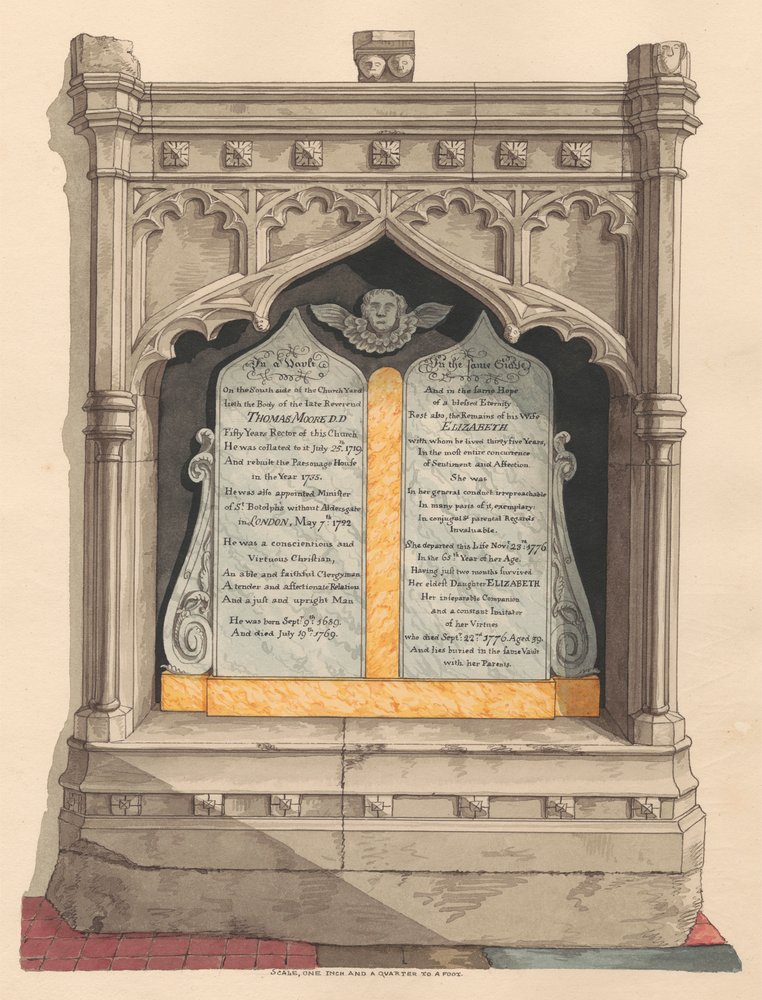 In a Vault
On the South side of the Church Yard
lieth the Body of the late Reverend
THOMAS MOORE D.D
Fifty Years Rector of this Church
He was collated to it July 25th. 1719.
And rebuilt the Parsonage House
in the Year 1735.
He was also appointed Minister
of St. Botolph's without Aldersgate
in LONDON, May 7th: 1722
He was a conscientious and
Virtuous Christian,
An able and faithful Clergyman
A tender and affectionate Relation
And a just and upright Man
He was born Septr. 9th. 1689.
And died July 19th. 1769.
In the same Grave
And in the same Hope
of a blessed Eternity
Rest also, the Remains of his Wife
ELIZABETH
with whom he lived thirty five Years,
In the most entire concurrence
of Sentiment and Affection.
She was
In her general conduct irreproachable
In many parts of it, exemplary:
In conjugal & parental Regards
Invaluable.
She departed this Life Novr. 23rd. 1776
In the 65th Year of her Age.
Having just two months survived
Her eldest Daughter ELIZABETH
Her inseparable Companion
and a constant Imitater
of her Virtues
who died Septr. 22nd. 1776. Aged 39.
And lies buried in the same Vault
with her Parents.
SCALE, ONE INCH AND A QUARTER TO A FOOT.